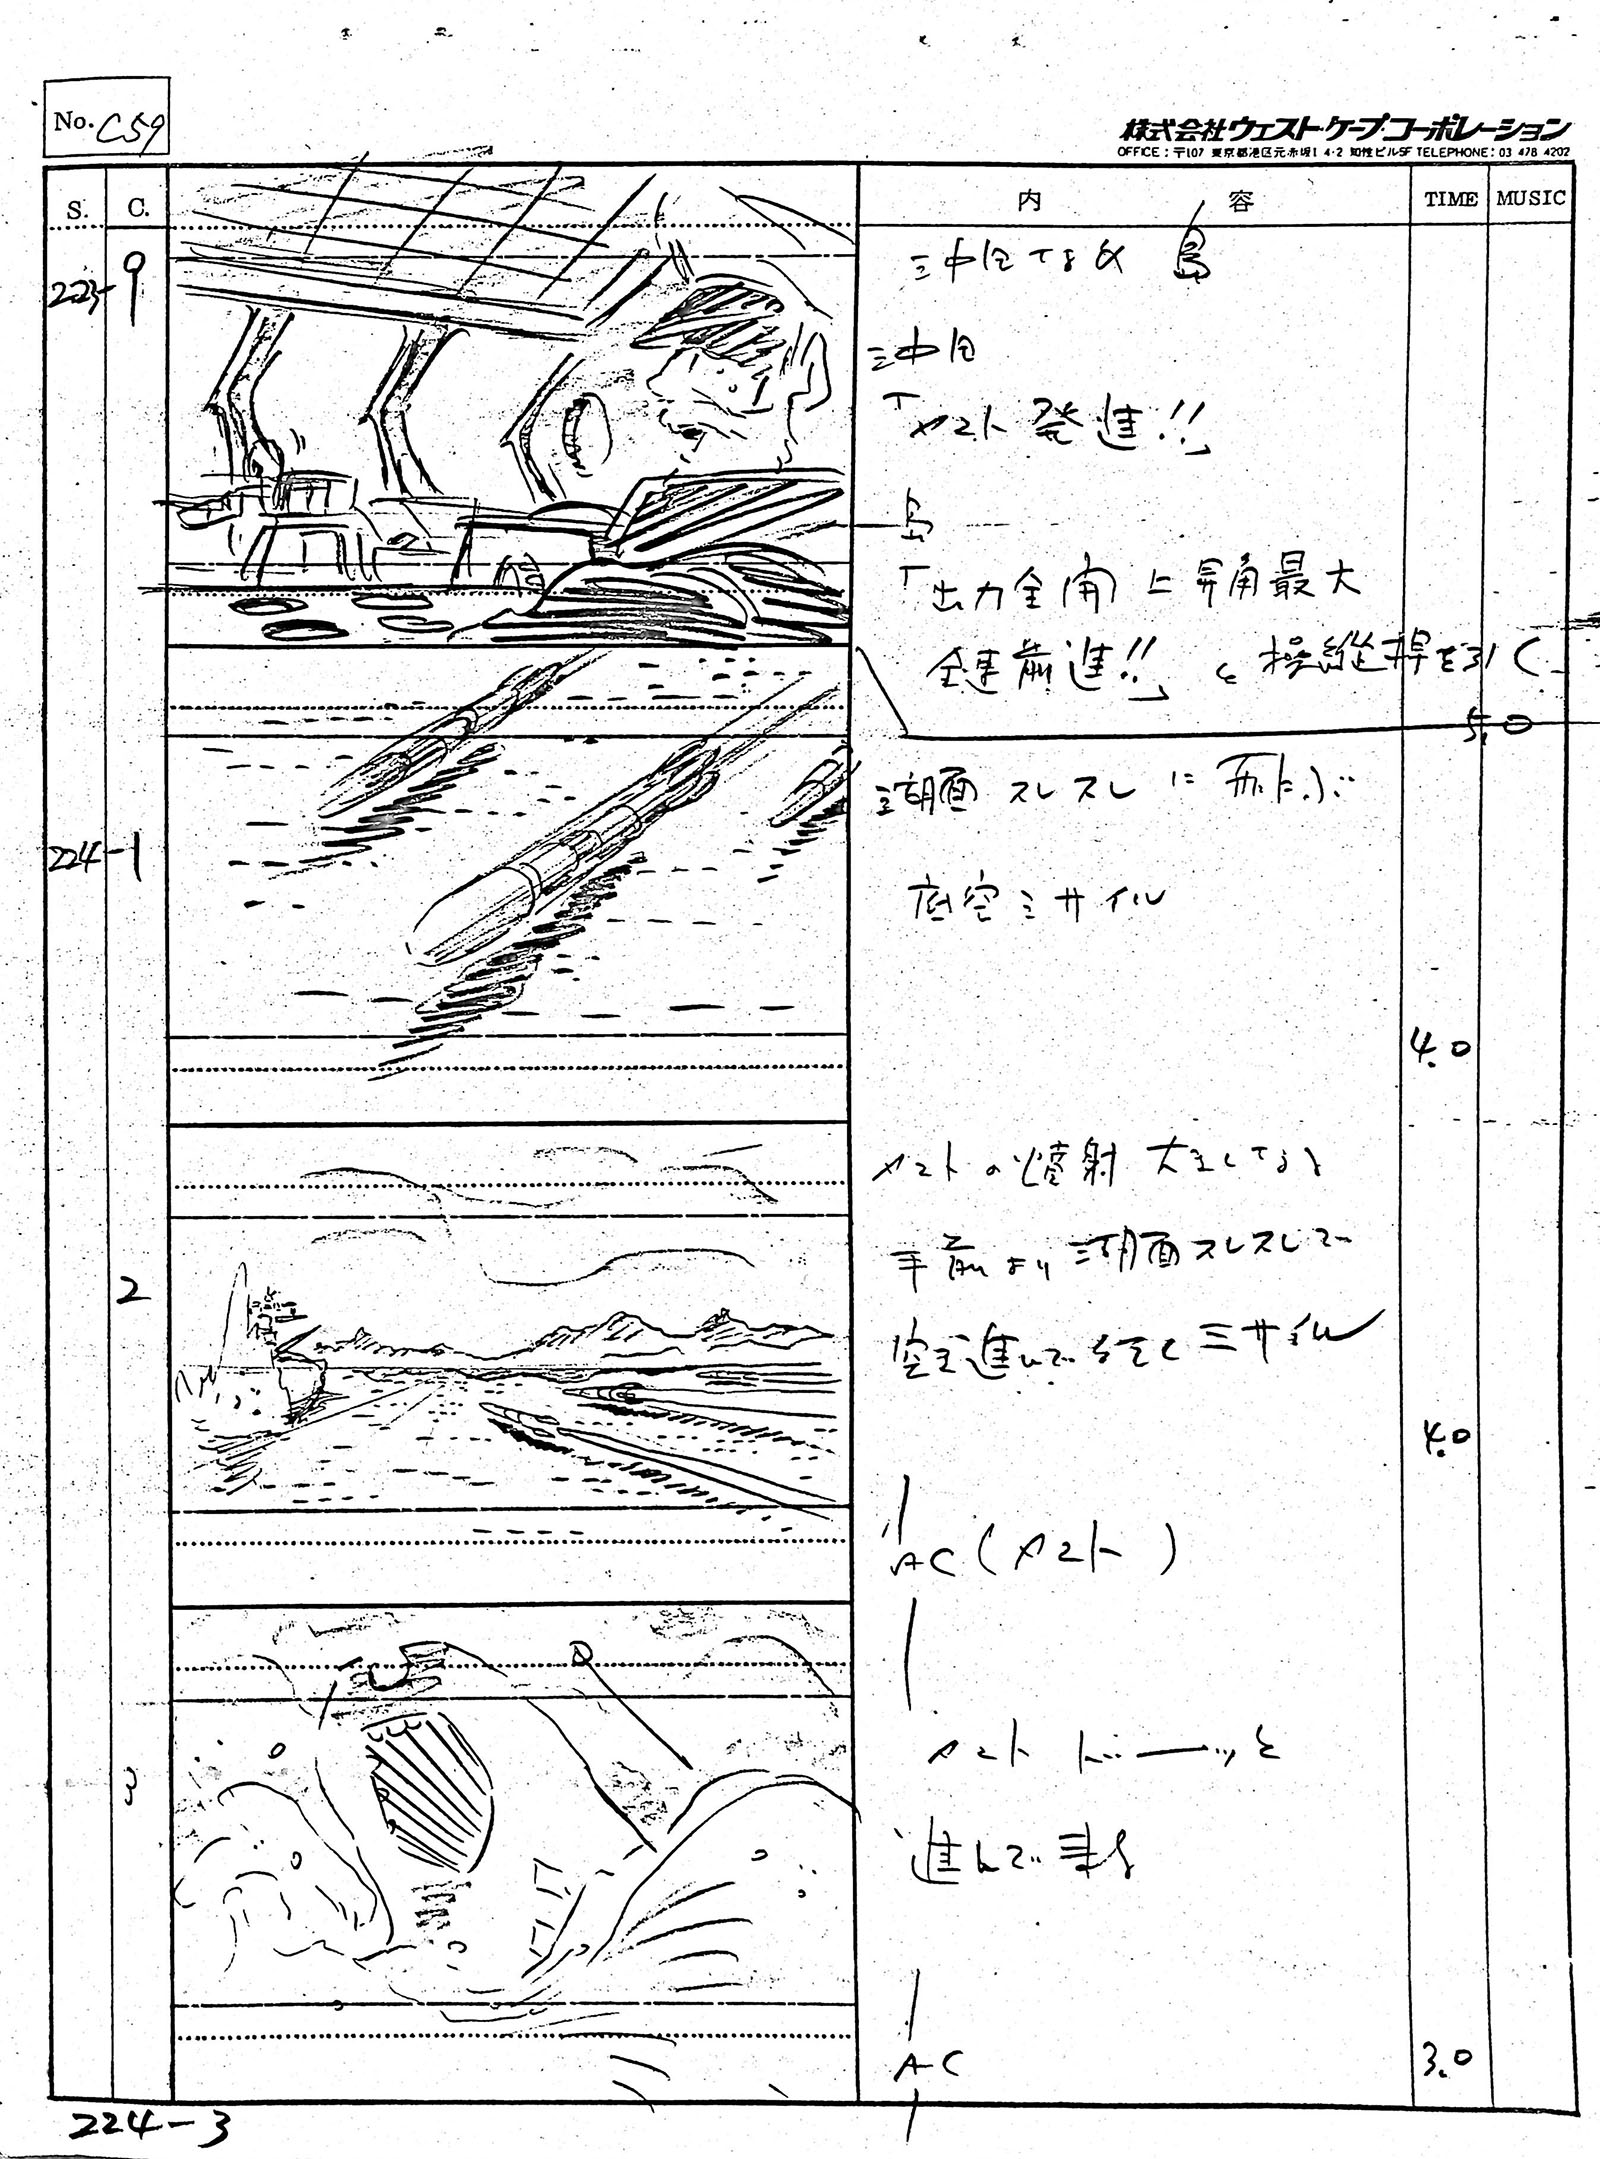 No. C59
株式会社ウェスト・ケープ・コーポレーション
OFFICE：〒107 東京都港区元赤坂1 4-2 知性ビル5F TELEPHONE：03 478 4202
S. C. 内 容 TIME MUSIC
223-9
沖田
「ヤマト 発進!!」
島
「出力全開 上昇角最大
全速前進!!」 と 操縦桿を引く
5.0
224-1
湖面 スレスレに 飛ぶ
底空ミサイル
4.0
2
ヤマトの噴射
手前より 湖面スレスレで
ミサイル
4.0
AC(ヤマト)
3
ヤマト ドーーッと
進んで来る
AC
3.0
224-3